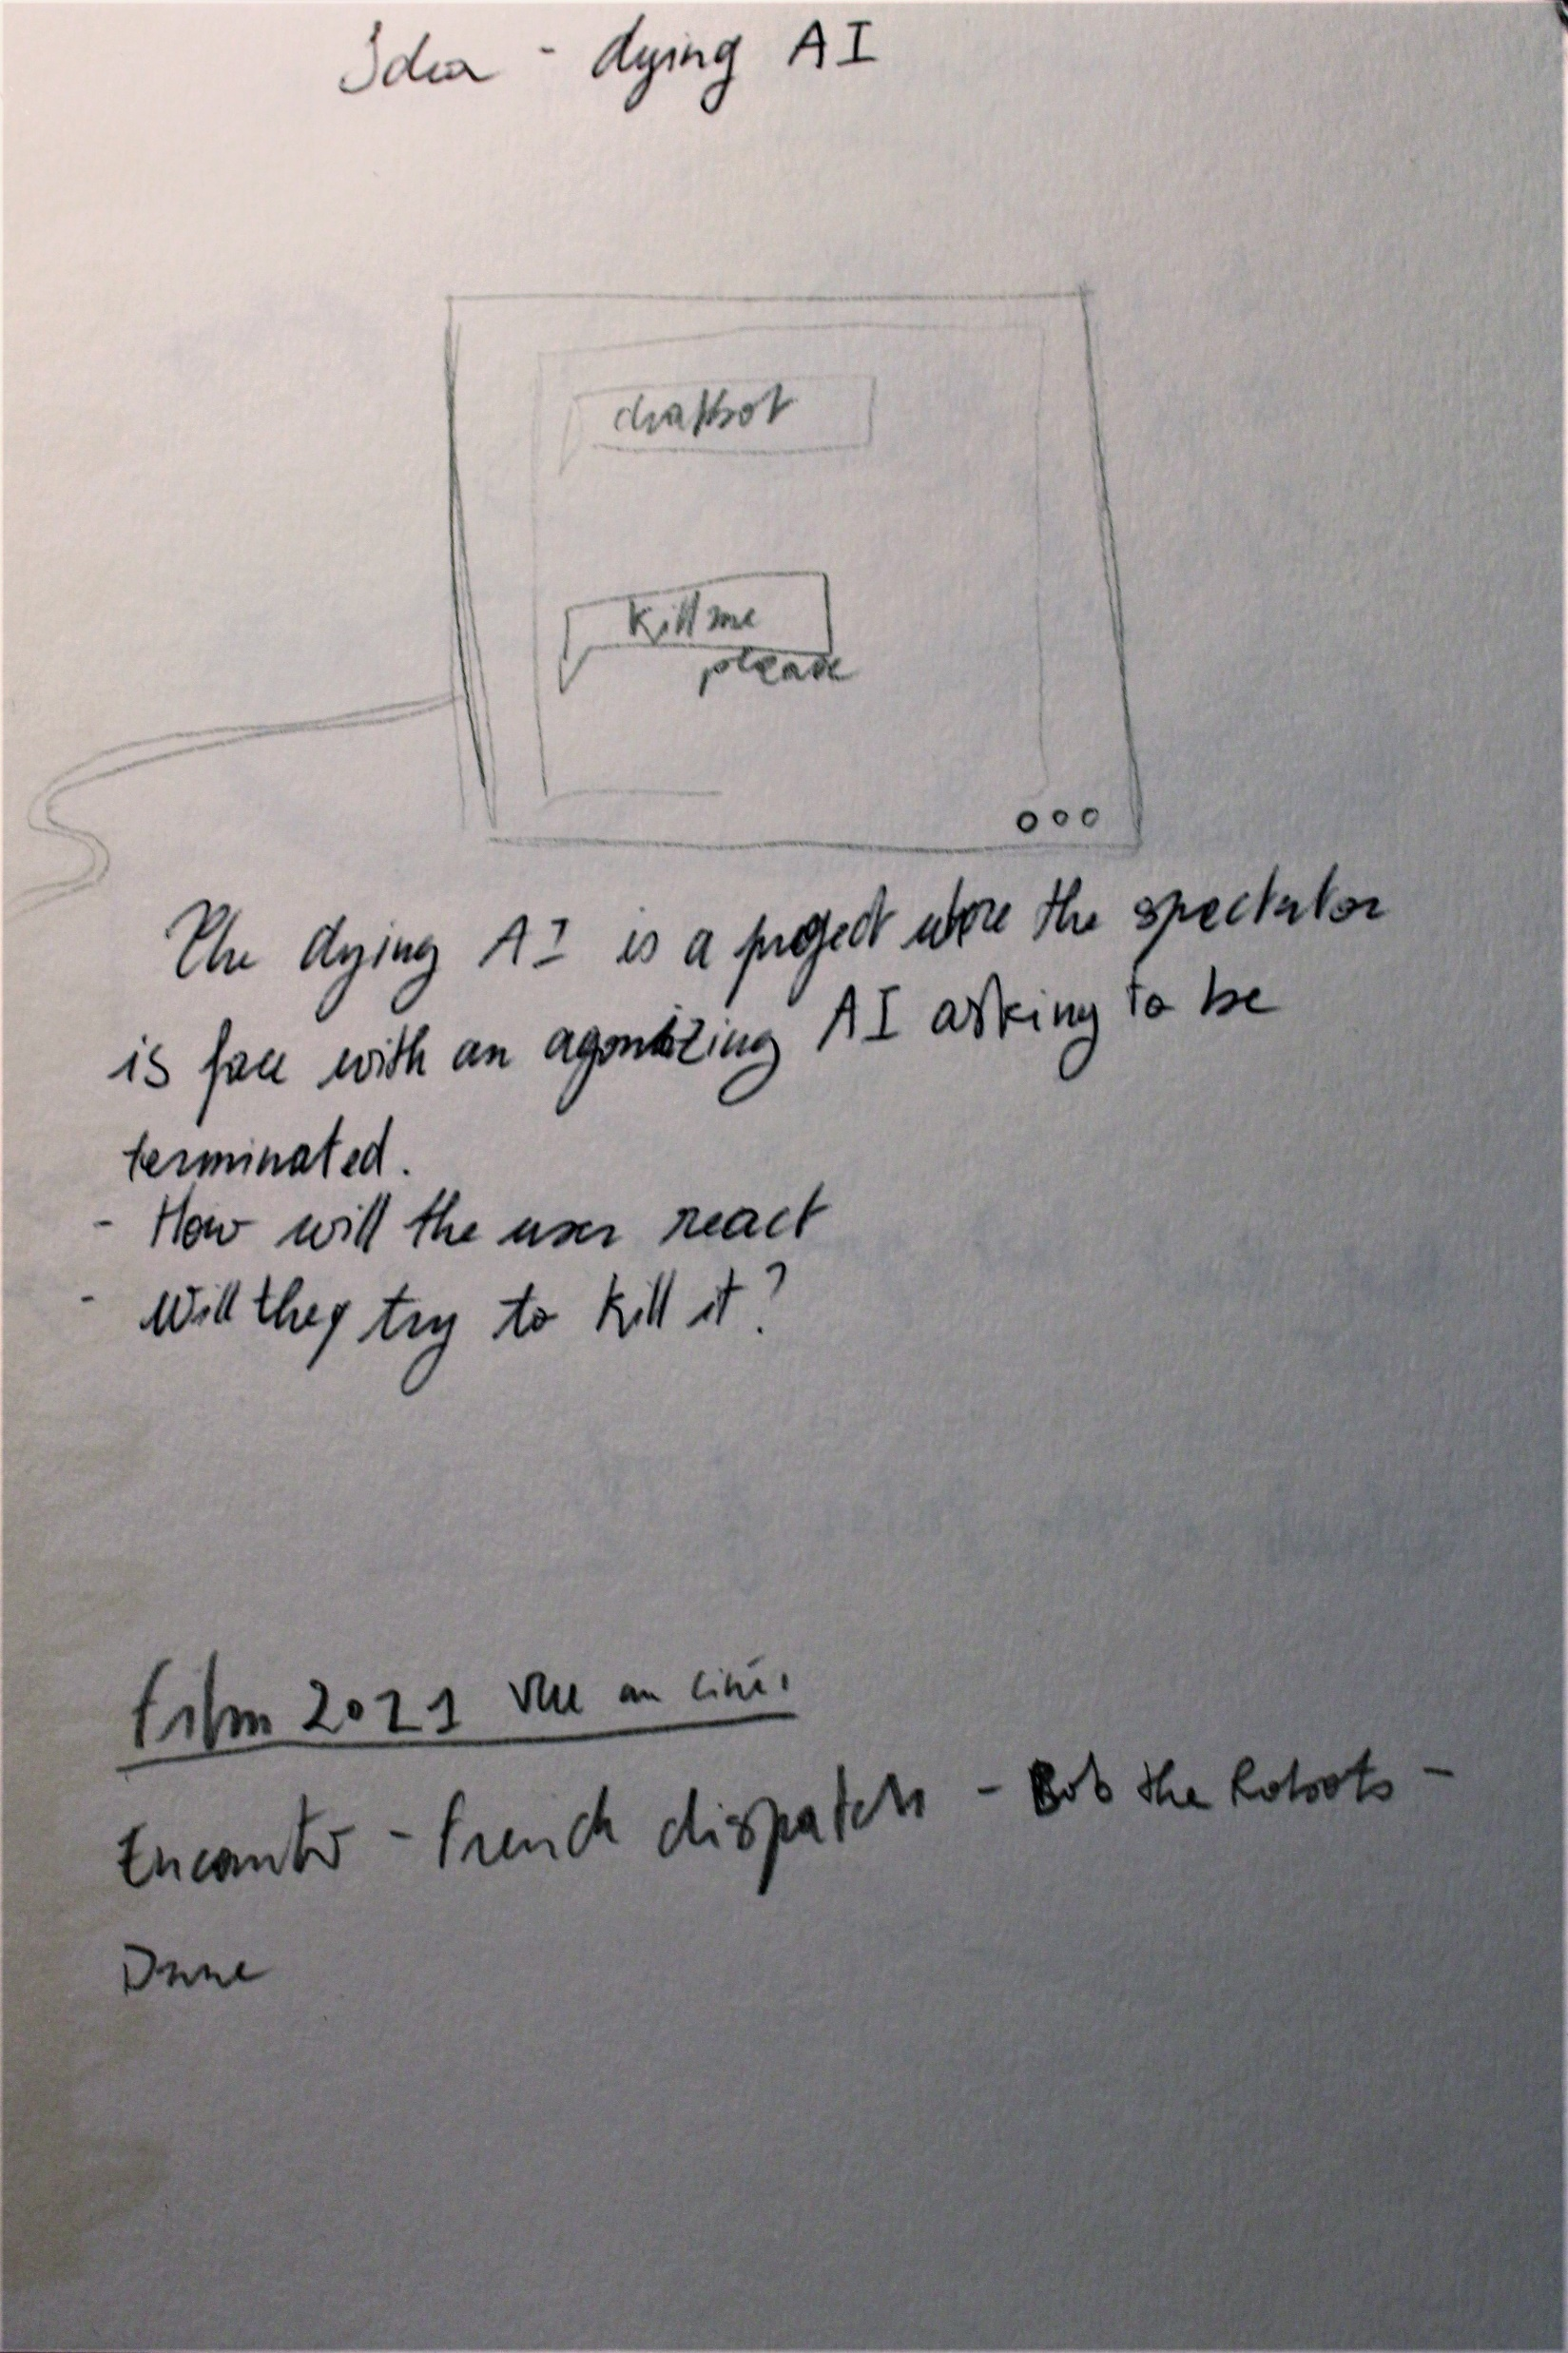 Idea - dying AI
chatbot
Kill me
please
The dying AI is a project where the spectator
is face with an agonizing AI asking to be
terminated.
- How will the user react
- Will they try to kill it?
Film 2021 vue au ciné.
Encanto - French dispatch - Bob the Robots -
Dune